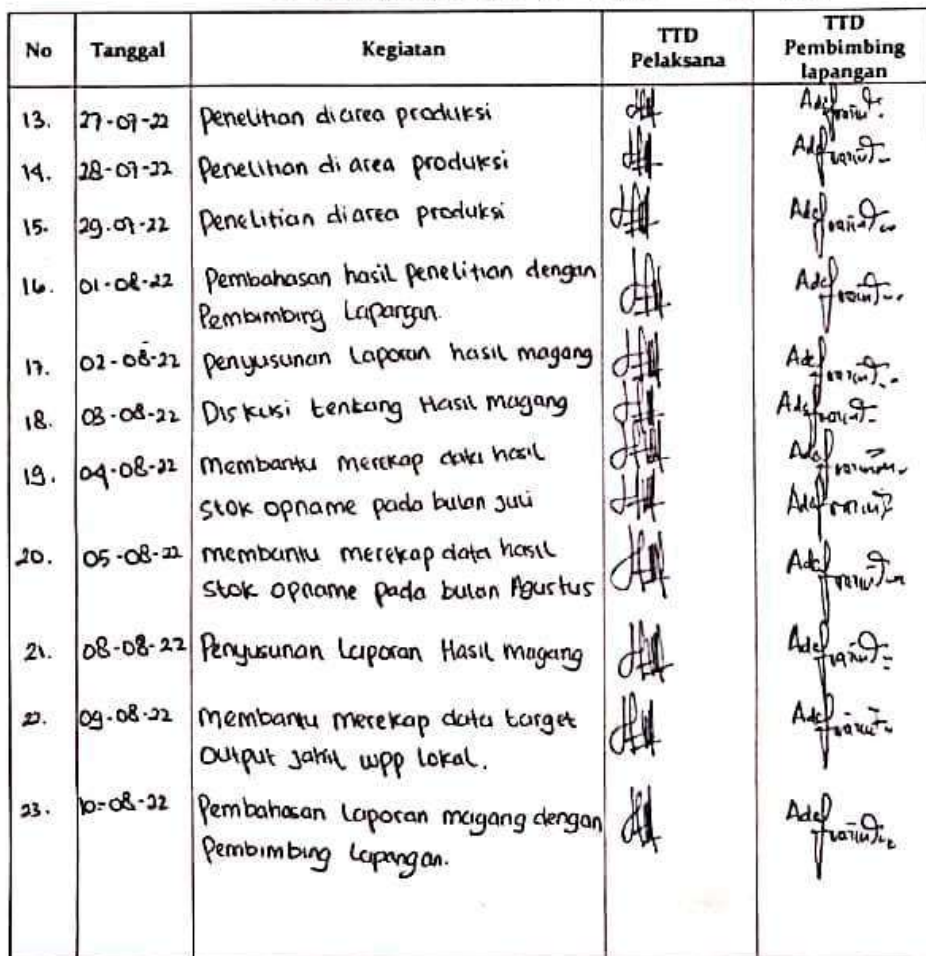 No Tanggal Kegiatan TTD Pelaksana TTD Pembimbing lapangan
13. 27-07-22 Penelitian diarea produksi
14. 28-07-22 Penelitian di area produksi
15. 29-07-22 Penelitian diarea produksi
16. 01-08-22 Pembahasan hasil Penelitian dengan
Pembimbing Lapangan.
17. 02-08-22 Penyusunan Laporan hasil magang
18. 03-08-22 Diskusi tentang Hasil magang
19. 04-08-22 Membantu merekap data hasil
stok opname pada bulan juli
20. 05-08-22 membantu merekap data hasil
stok opname pada bulan Agustus
21. 08-08-22 Penyusunan Laporan Hasil magang
22. 09-08-22 membantu merekap data target
output jahit wpp lokal.
23. 10-08-22 Pembahasan Laporan magang dengan
Pembimbing Lapangan.